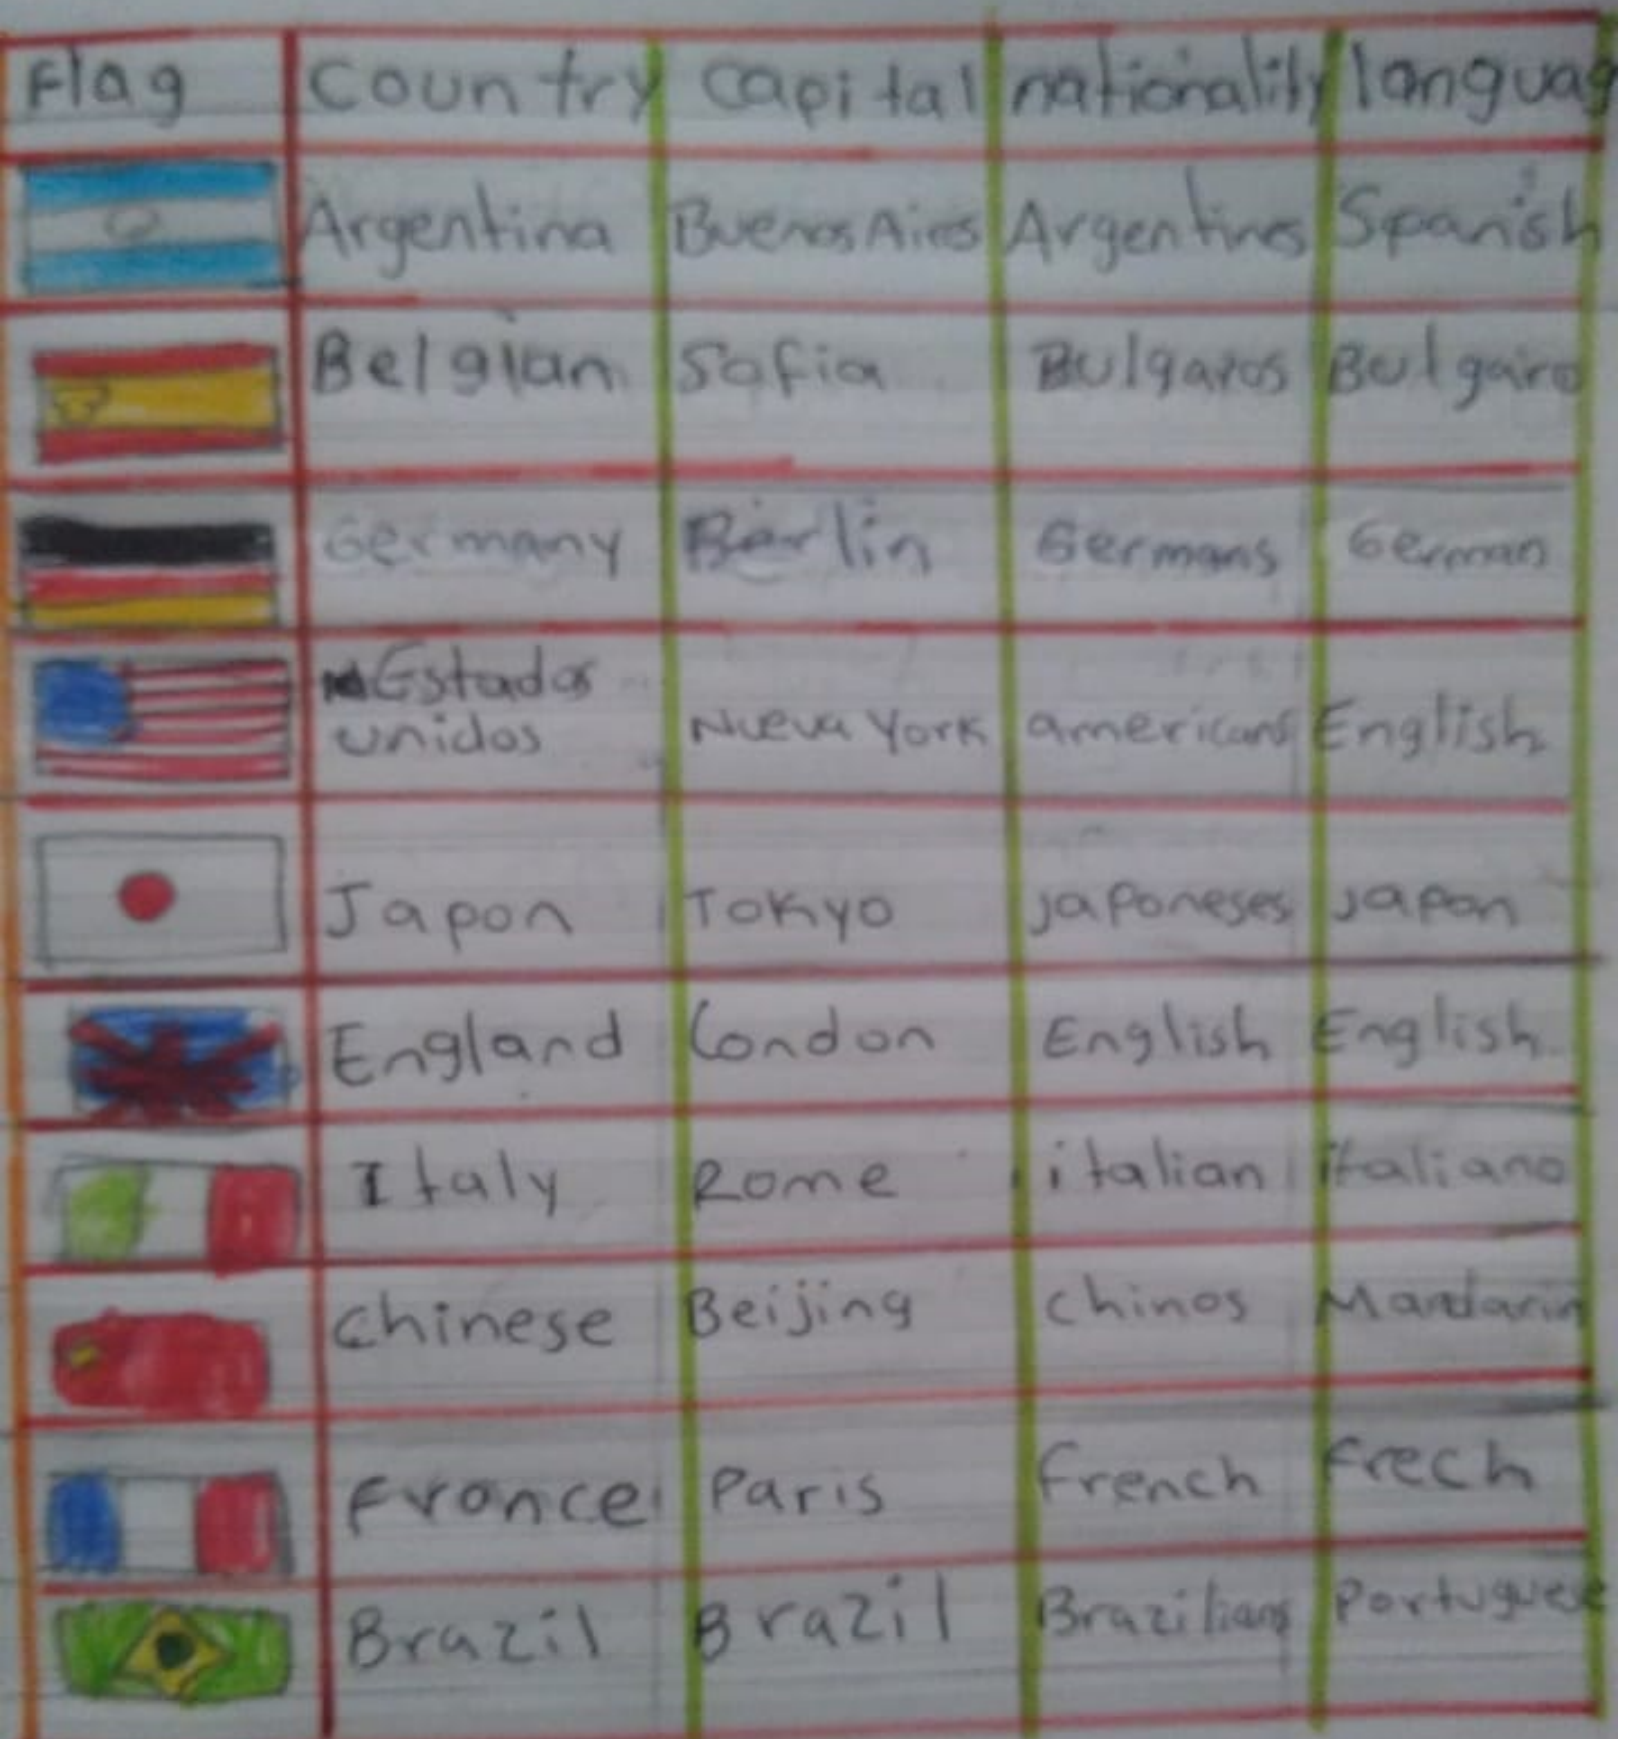 Flag Country Capital nationality languag
Argentina Buenos Aires Argentines Spanish
Belgian Sofia Bulgaros Bulgaro
Germany Berlin Germans German
Estados
unidos Nueva York americans English
Japon Tokyo japoneses japon
England London English English
Italy Rome italian italiano
Chinese Beijing Chinos Mandarin
France Paris French Frech
Brazil Brazil Brazilians Portuguese